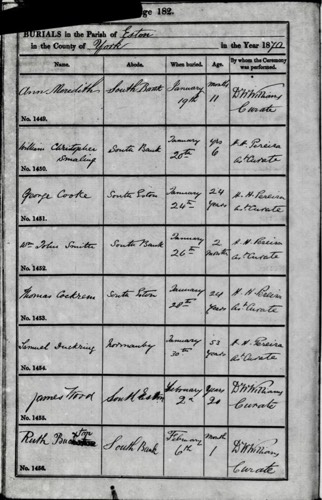 Page 182.
BURIALS in the Parish of Eston
in the County of York in the Year 1870
Name. Abode. When buried. Age. By whom the Ceremony was performed.
Ann Meredith South Bank January 19th months 11 D W Williams Curate
No. 1449.
William Christopher Smaling South Bank January 20th yrs 6 H. H. Pereira Curate
No. 1450.
George Cooke South Eston January 24th 24 years H. H. Pereira Curate
No. 1451.
Wm John Smith South Bank January 26th 2 months H. H. Pereira Curate
No. 1452.
Thomas Cockrem South Eston January 28th 24 years H. H. Pereira Curate
No. 1453.
Samuel Duckring Normanby January 30th 53 years H. H. Pereira Curate
No. 1454.
James Wood South Eston February 2d years 30 D W Williams Curate
No. 1455.
Ruth South Bank February 6th month 1 D W Williams Curate
No. 1456.